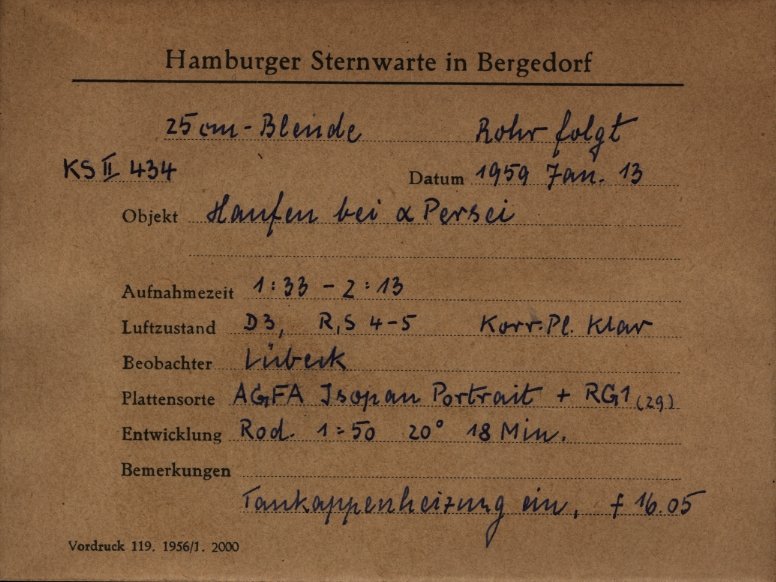 Hamburger Sternwarte in Bergedorf
25 cm-Blende Rohr folgt
KS II 434 Datum 1959 Jan. 13
Objekt Haufen bei α Persei
Aufnahmezeit 1:33 - 2:13
Luftzustand D3, R,S 4-5 Korr. Pl. klar
Beobachter Lübeck
Plattensorte AGFA Isopan Portrait + RG1 (2g)
Entwicklung Rod. 1:50 20° 18 Min.
Bemerkungen
Taukappenheizung ein, f 16.05
Vordruck 119. 1956/1. 2000